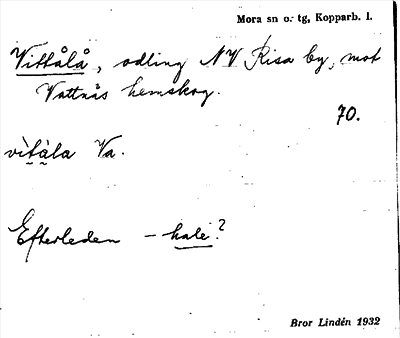 Mora sn o. tg, Kopparb. l.
Vittålå, odling NV Risa by, mot
Vattnäs hemskog.
70.
vìtàla Va.
Efterleden - hale?
Bror Lindén 1932